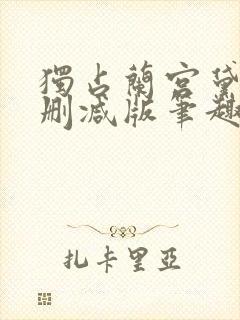 獨占蘭宮黛
刪减版筆趣
扎卡里亞